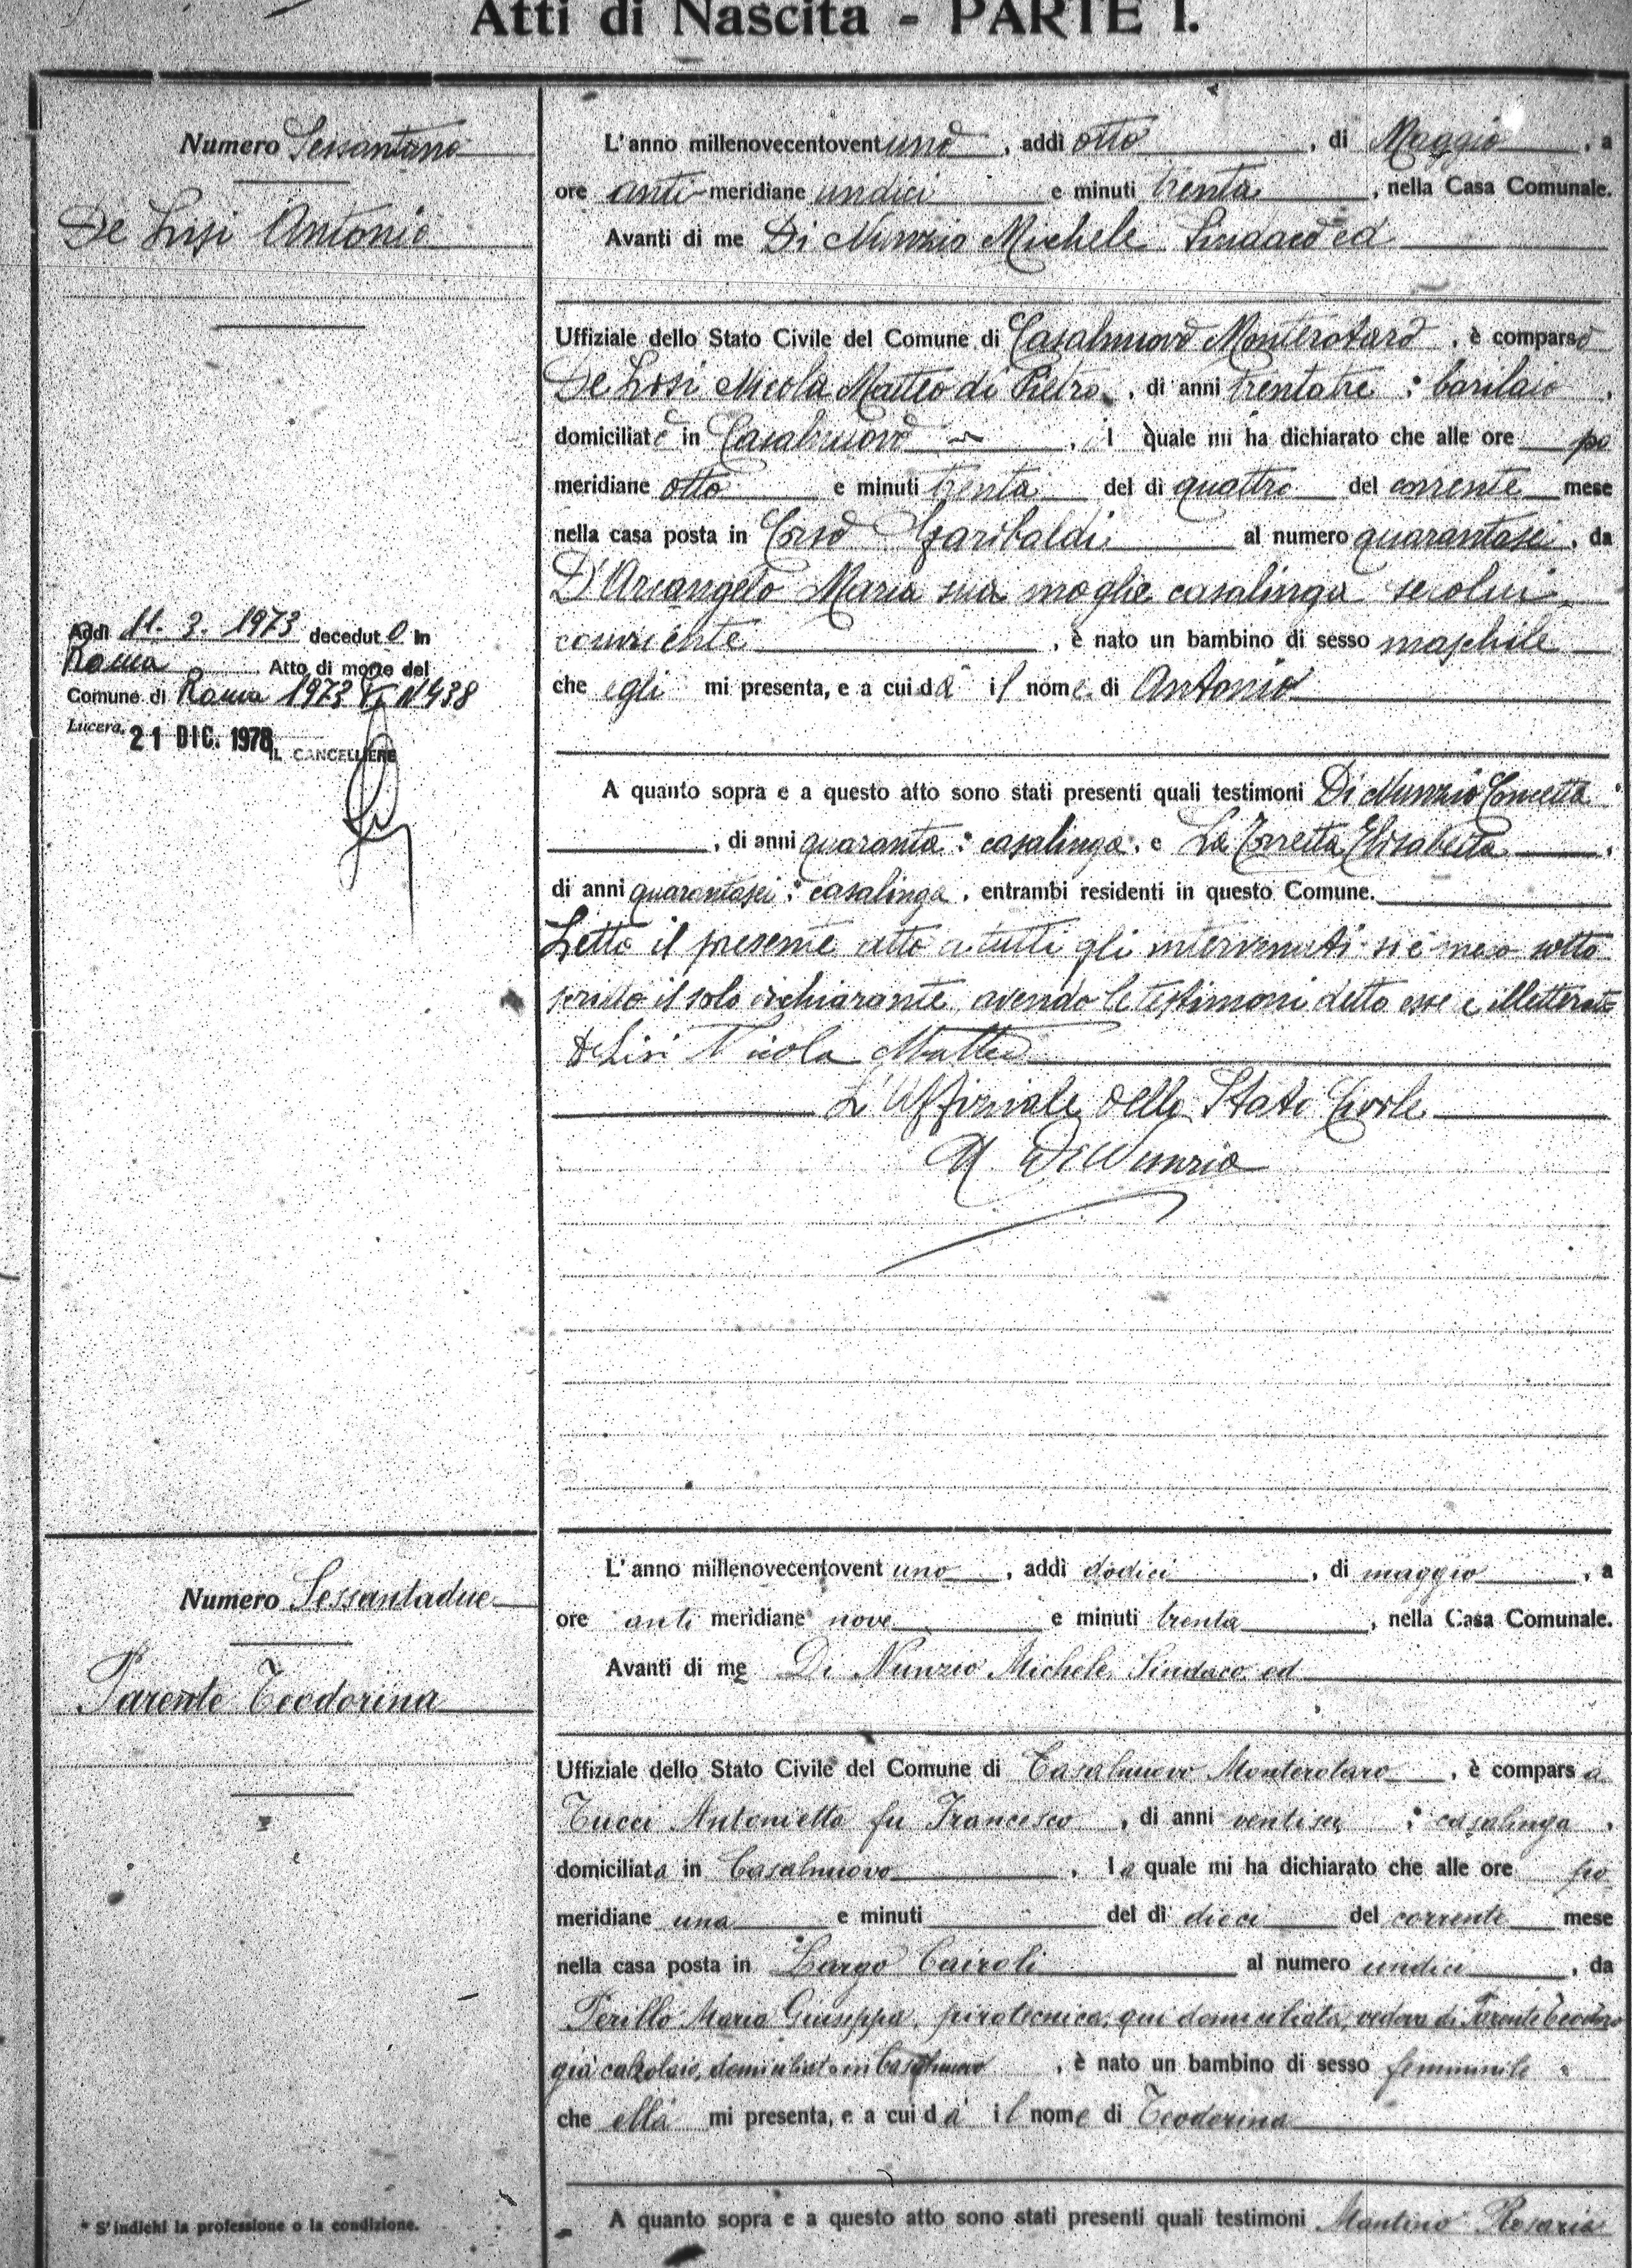 Atti di Nascita - PARTE I.
Numero Sessantuno
De Lisi Antonio
Addì 11. 3. 1973 decedut o in
Roma Atto di morte del
Comune di Roma 1973 N 438
Lucera, 21 DIC. 1978
IL CANCELLIERE
L'anno millenovecentovent uno, addì otto, di Maggio, a
ore anti-meridiane undici e minuti trenta, nella Casa Comunale.
Avanti di me Di Nunzio Michele Sindaco ed
Uffiziale dello Stato Civile del Comune di Casalnuovo Monterotaro, è comparso
De Lisi Nicola Matteo di Pietro, di anni trentatre : barilaio,
domiciliato in Casalnuovo, il quale mi ha dichiarato che alle ore po
meridiane otto e minuti trenta del dì quattro del corrente mese
nella casa posta in Corso Garibaldi al numero quarantasei, da
D'Arcangelo Maria sua moglie casalinga secolui
convivente, è nato un bambino di sesso maschile
che egli mi presenta, e a cui dà il nome di Antonio
A quanto sopra e a questo atto sono stati presenti quali testimoni Di Nunzio Concetta
, di anni quaranta : casalinga, e La Torretta Elisabetta,
di anni quarantasei : casalinga, entrambi residenti in questo Comune.
Letto il presente atto a tutti gli intervenuti si è meco sotto
scritto il solo dichiarante, avendo le testimoni detto essere illetterate
De Lisi Nicola Matteo
L'Uffiziale dello Stato Civile
M. Di Nunzio
Numero Sessantadue
Parente Teodorina
L'anno millenovecentovent uno, addì dodici, di maggio, a
ore anti meridiane nove e minuti trenta, nella Casa Comunale.
Avanti di me Di Nunzio Michele Sindaco ed
Uffiziale dello Stato Civile del Comune di Casalnuovo Monterotaro, è comparsa
Tucci Antonietta fu Francesco, di anni ventisei : casalinga,
domiciliata in Casalnuovo, la quale mi ha dichiarato che alle ore po
meridiane una e minuti del dì dieci del corrente mese
nella casa posta in Largo Cairoli al numero undici, da
Perillo Maria Giuseppa, pirotecnica, qui domiciliata, vedova di Parente Teodoro
già calzolaio, domiciliato in Casalnuovo, è nato un bambino di sesso femminile
che ella mi presenta, e a cui dà il nome di Teodorina
A quanto sopra e a questo atto sono stati presenti quali testimoni Rosaria
* S'indichi la professione o la condizione.